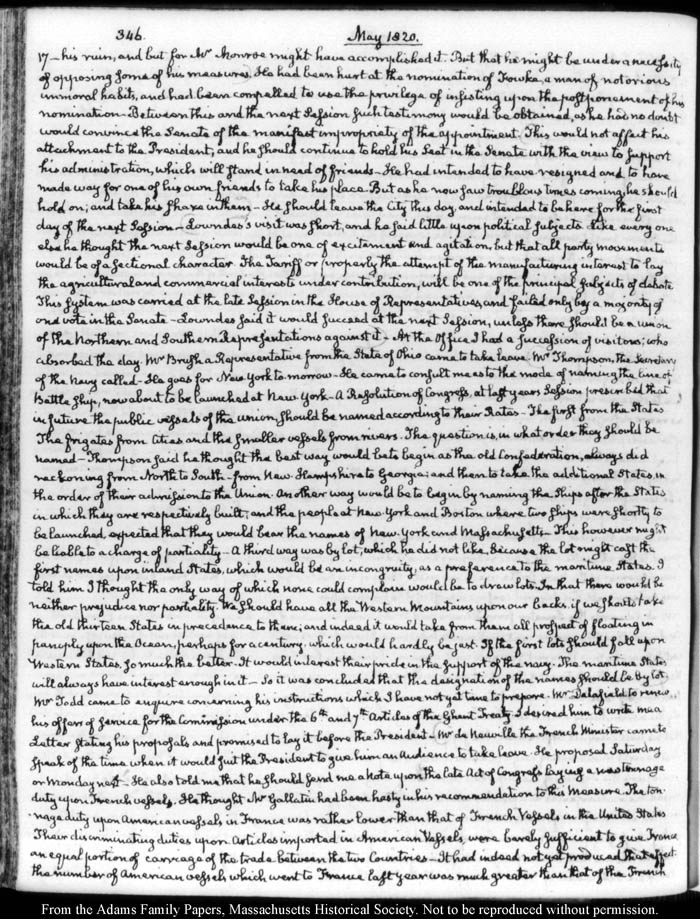 346.
May 1820.
17 — his ruin, and but for Mr Monroe might have accomplished it. But that he might be under a necessity
of opposing some of his measures. He had been hurt at the nomination of Fowke, a man of notorious
immoral habits, and had been compelled to use the privilege of insisting upon the postponement of his
nomination — Between this and the next Session such testimony would be obtained, as he had no doubt
would convince the Senate of the manifest impropriety of the appointment. This would not affect his
attachment to the President, and he should continue to hold his Seat in the Senate with the view to support
his administration, which will stand in need of friends — He had intended to have resigned and to have
made way for one of his own friends to take his place. But as he now saw troublous times coming, he should
hold on, and take his share in them — He should leave the City this day, and intended to be here for the first
day of the next Session — Lowndes's visit was short, and he said little upon political subjects. Like every one
else he thought the next Session would be one of excitement and agitation, but that all party movements
would be of a sectional character. The Tariff or properly the attempt of the manufacturing interest to lay
the agricultural and commercial interests under contribution, will be one of the principal subjects of debate
This system was carried at the late Session in the House of Representatives, and failed only by a majority of
one vote in the Senate — Lowndes said it would succeed at the next Session, unless there should be a union
of the Northern and Southern Representations against it — At the Office I had a succession of visitors, who
absorbed the day. Mr Brush a Representative from the State of Ohio came to take leave. Mr Thompson, the Secretary
of the Navy called — He goes for New York to-morrow — He came to consult me as to the mode of naming the line of
Battle Ship, now about to be launched at New York — A Resolution of Congress, at last years Session prescribed that
in future the public vessels of the union, should be named according to their Rates — The first from the States
The frigates from Cities and the smaller vessels from rivers. The question is, in what order they should be
named — Thompson said he thought the best way would be to begin as the old Confederation, always did
reckoning from North to South — from New Hampshire to Georgia; and then to take the additional States, in
the order of their admission to the Union. Another way would be to begin by naming the Ships after the States
in which they are respectively built; and the people at New York and Boston where two ships were shortly to
be launched, expected that they would bear the names of New York and Massachusetts — This however might
be liable to a charge of partiality — A third way was by lot, which he did not like, because the lot might cast the
first names upon inland States, which would be an incongruity, as a preference to the maritime States. I
told him I thought the only way of which none could complain would be to draw lots. In that there would be
neither prejudice nor partiality. We should have all the Western Mountains upon our backs if we should take
the old thirteen States in precedence to them; and indeed it would take from them all prospect of floating in
panoply upon the Ocean, perhaps for a century. which would hardly be just. If the first lots should fall upon
Western States, so much the better. It would interest their pride in the support of the navy. The maritime States
will always have interest enough in it — So it was concluded that the designation of the names should be by lot.
Mr Todd came to enquire concerning his instructions which I have not yet time to prepare. Mr Delafield to renew
his offers of service for the Commission under the 6th and 7th Articles of the Ghent Treaty. I desired him to write me a
Letter stating his proposals and promised to lay it before the President — Mr de Neuville the French Minister came to
speak of the time when it would suit the President to give him an Audience to take leave. He proposed Saturday
or Monday next — He also told me that he should send me a Note upon the late Act of Congress laying a new tonnage
duty upon French vessels. He thought Mr Gallatin had been hasty in his recommendation to this Measure. The ton-
nage duty upon American vessels in France was rather lower than that of French Vessels in the United States
Their discriminating duties upon Articles imported in American Vessels, were barely sufficient to give France
an equal portion of carriage of the trade between the two Countries — It had indeed not yet produced that effect
the number of American vessels which went to France last year was much greater than that of the French
From the Adams Family Papers, Massachusetts Historical Society. Not to be reproduced without permission.